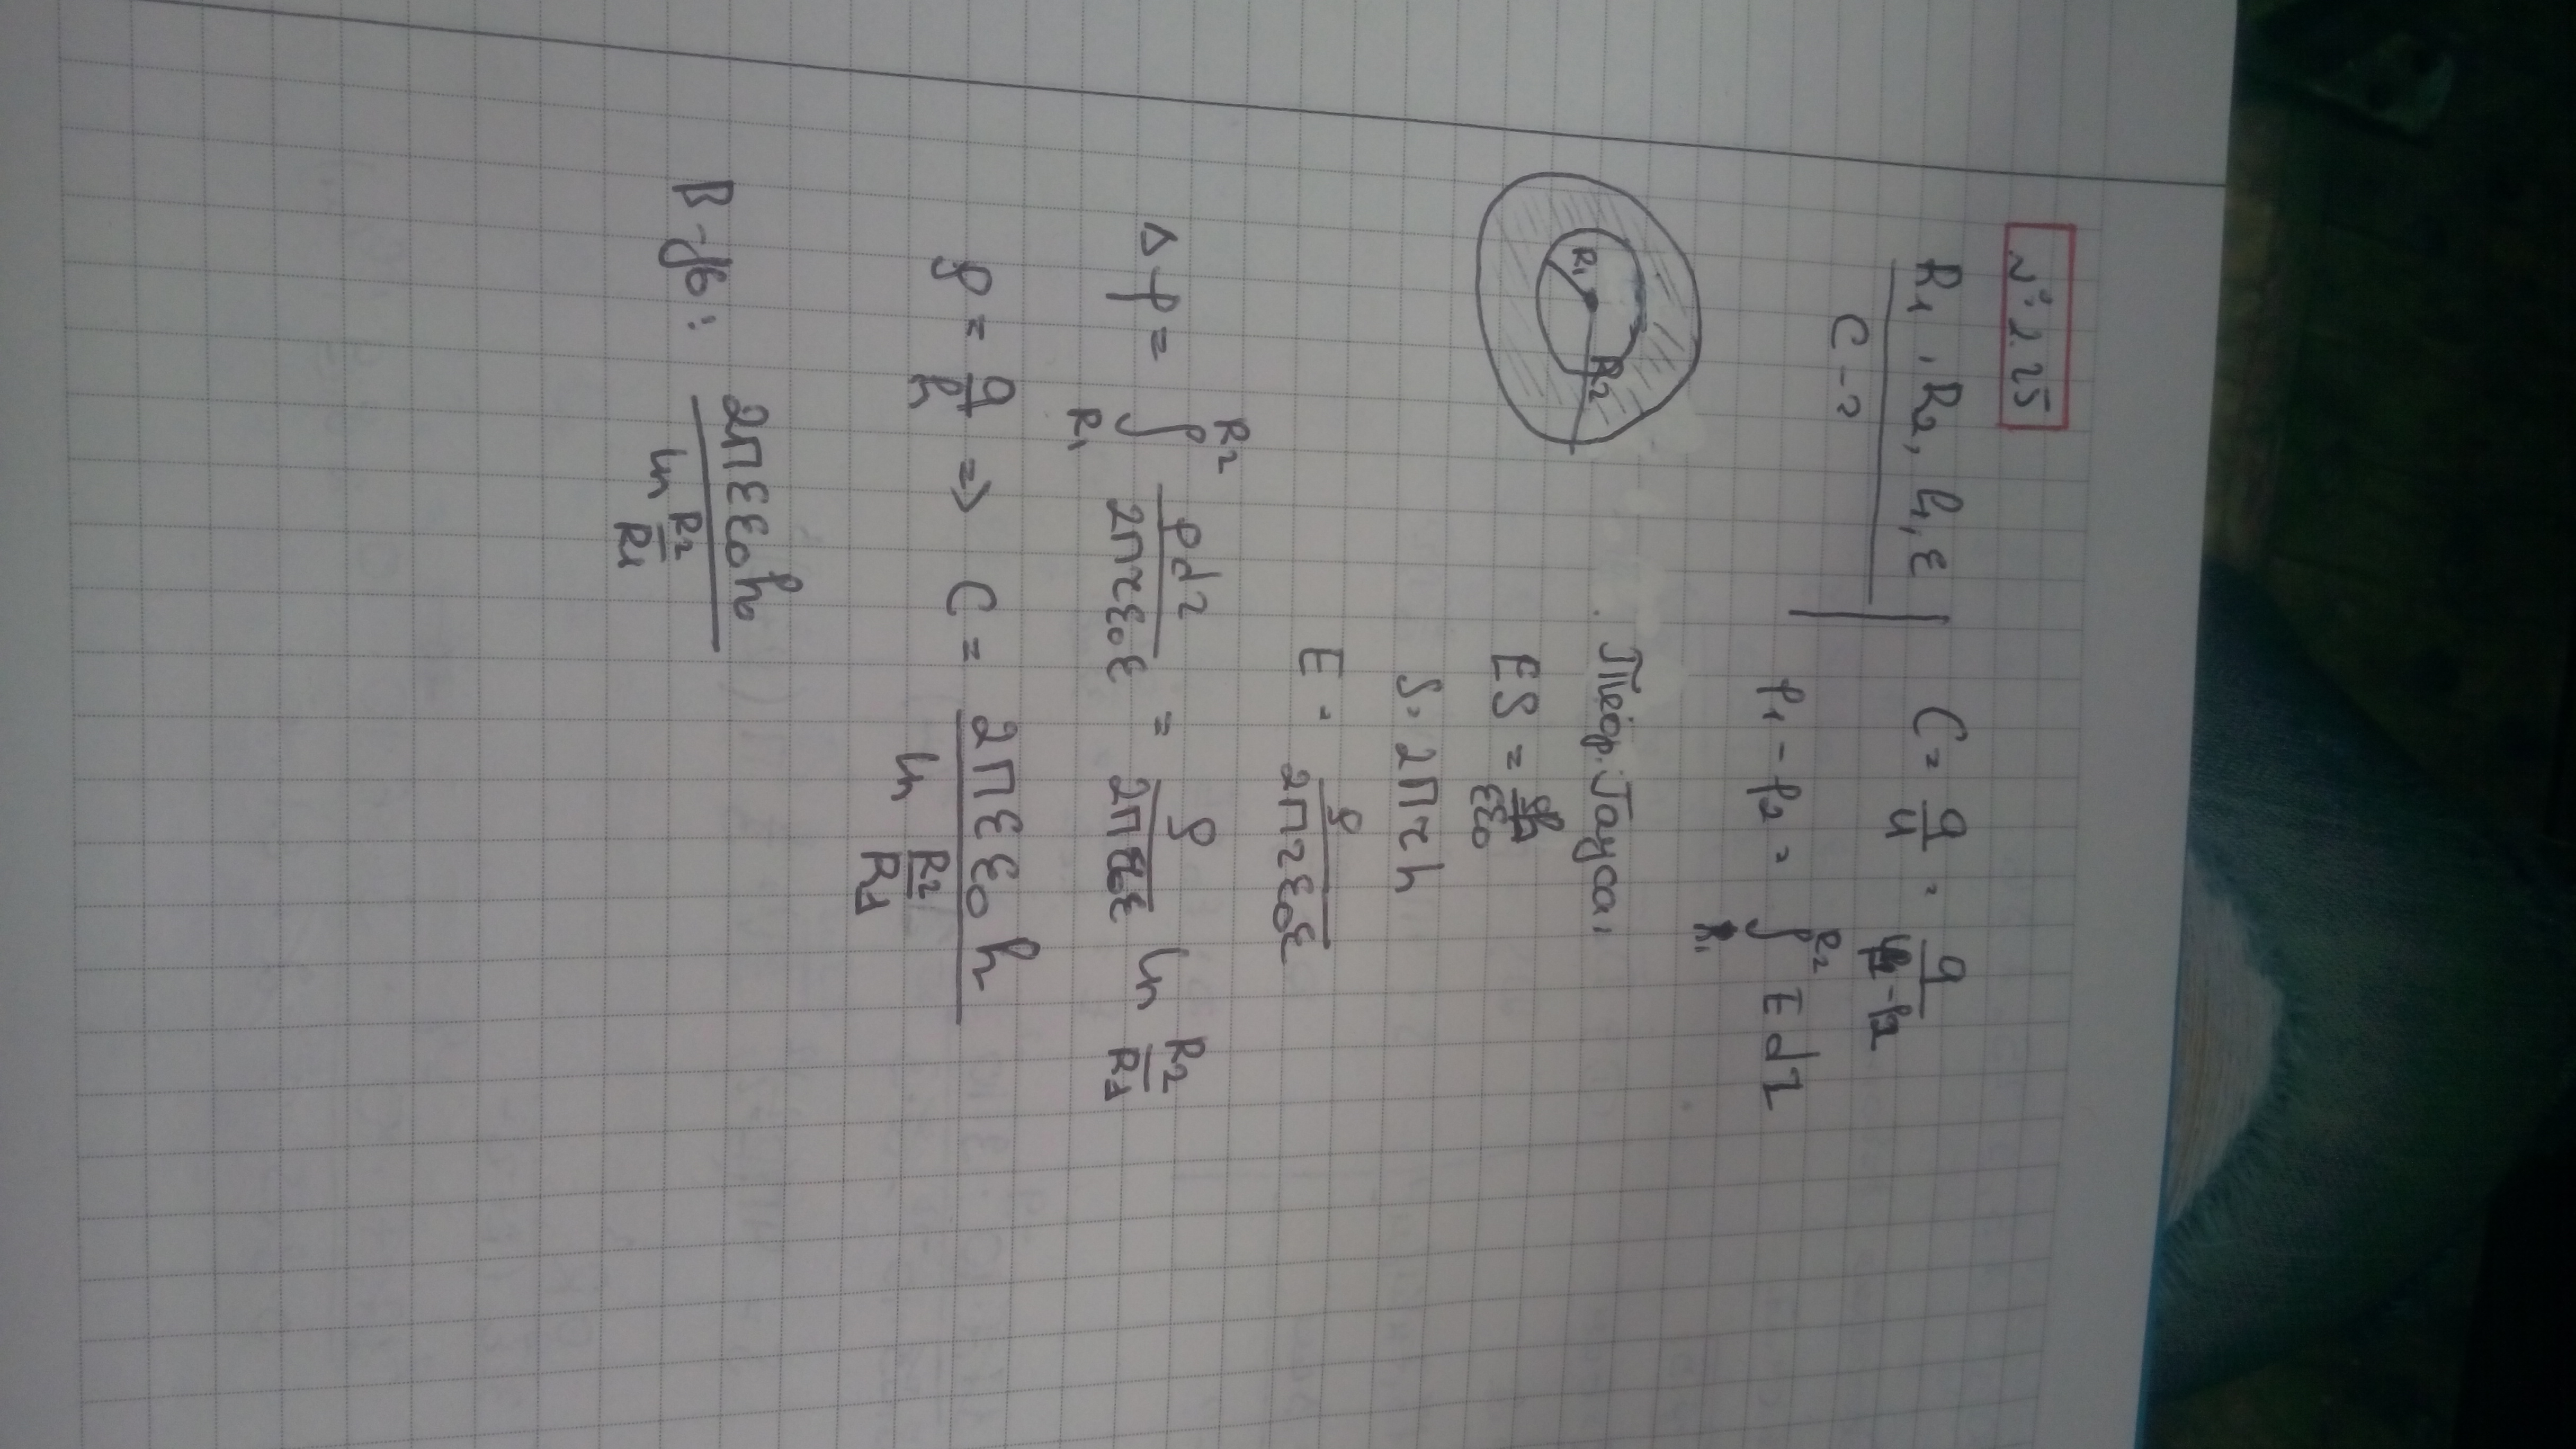 № 1.25
R₁, R₂, h, ε
C - ?
C = q/U = q/(φ₁-φ₂)
φ₁ - φ₂ = ∫_{R₁}^{R₂} E dr
R₁
R₂
Теор. Гауса:
ES = ρh/εε₀
S = 2πrh
E = ρ/2πrε₀ε
Δφ = ∫_{R₁}^{R₂} ρdr/2πrε₀ε = ρ/2πε₀ε ln R₂/R₁
ρ = q/h => C = 2πεε₀h/ln R₂/R₁
В-дь: 2πεε₀h/ln R₂/R₁